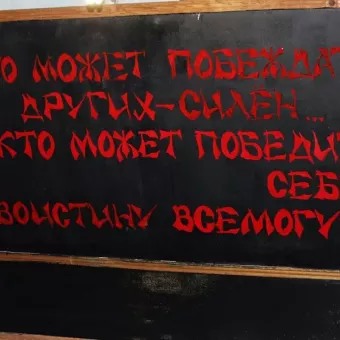 О МОЖЕТ ПОБЕЖДАТ
ДРУГИХ-СИЛЁН...
КТО МОЖЕТ ПОБЕДИТ
СЕБ
ВОИСТИНУ ВСЕМОГУ